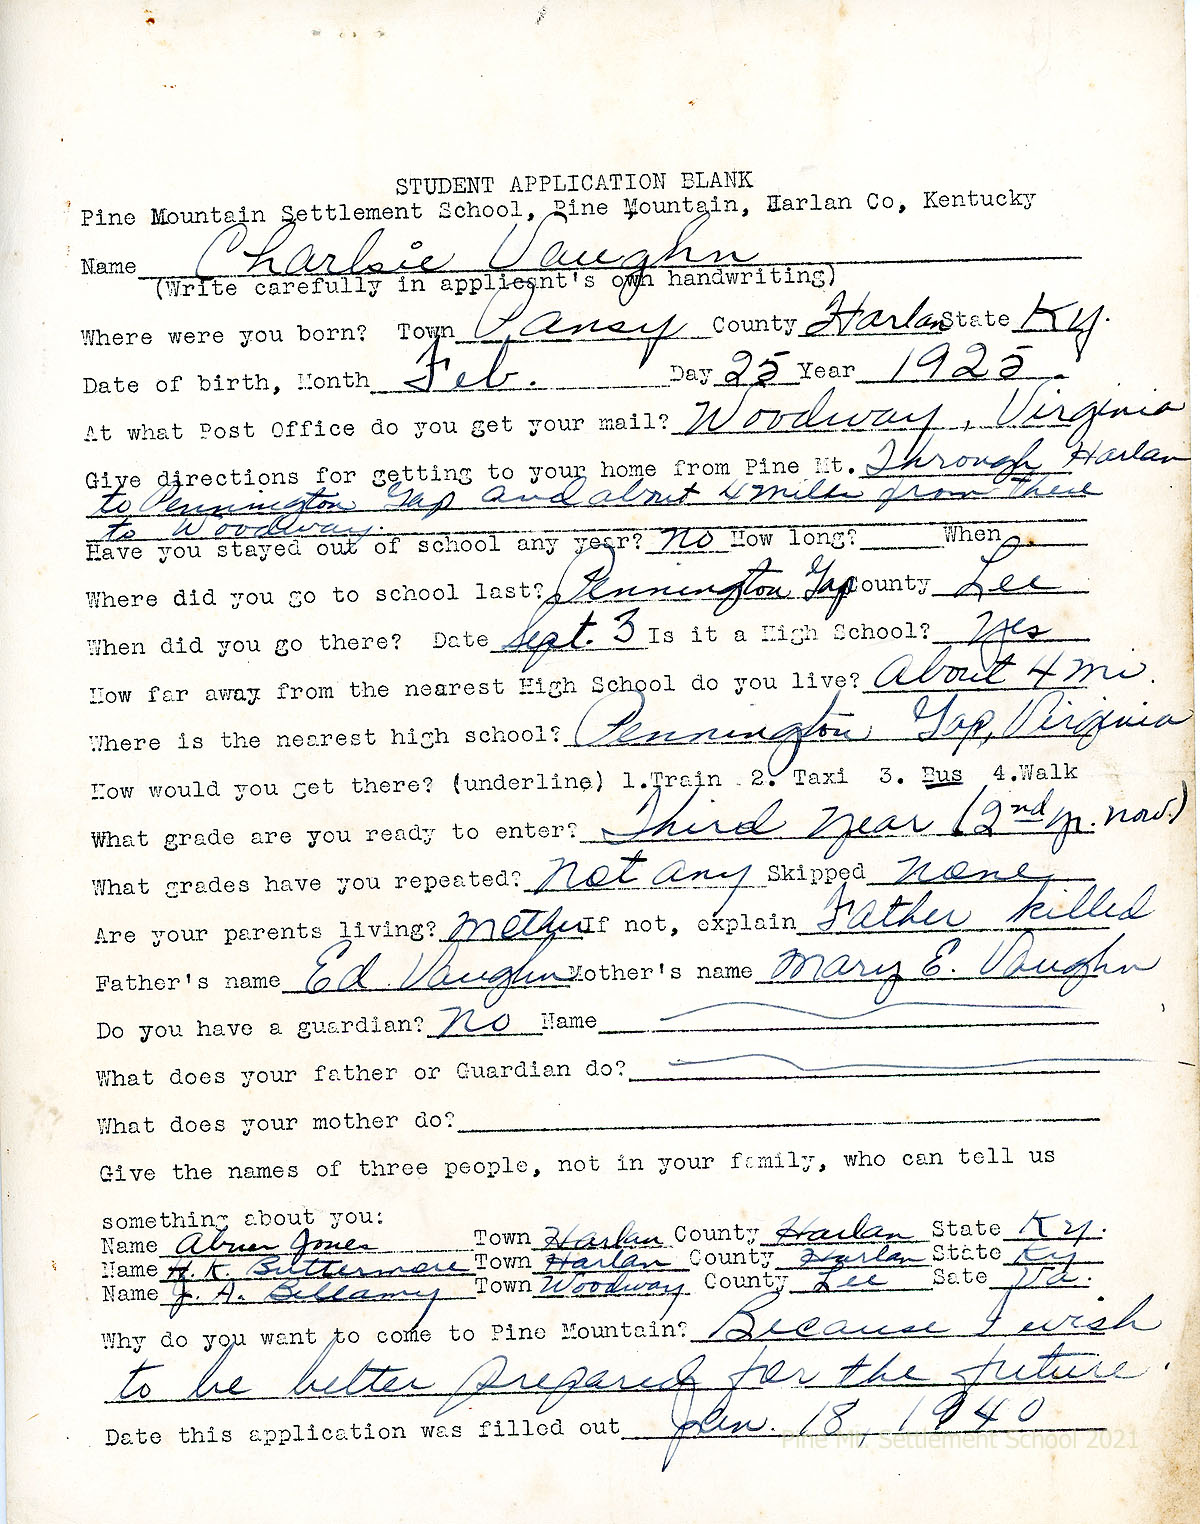 STUDENT APPLICATION BLANK
Pine Mountain Settlement School, Pine Mountain, Harlan Co, Kentucky
Name Charlsie Vaughn
(Write carefully in applicant's own handwriting)
Where were you born? Town Pansy County Harlan State Ky.
Date of birth, Month Feb. Day 25 Year 1925.
At what Post Office do you get your mail? Woodway, Virginia
Give directions for getting to your home from Pine Mt. Through Harlan
to Pennington Gap and about 4 miles from there
to Woodway.
Have you stayed out of school any year? No How long? When
Where did you go to school last? Pennington Gap County Lee
When did you go there? Date Sept. 3 Is it a High School? Yes
How far away from the nearest High School do you live? About 4 mi.
Where is the nearest high school? Pennington Gap, Virginia
How would you get there? (underline) 1.Train 2. Taxi 3. Bus 4.Walk
What grade are you ready to enter? Third Year (2nd yr. now.)
What grades have you repeated? Not any Skipped None
Are your parents living? Mother If not, explain Father killed
Father's name Ed Vaughn Mother's name Mary E. Vaughn
Do you have a guardian? No Name
What does your father or Guardian do?
What does your mother do?
Give the names of three people, not in your family, who can tell us
something about you:
Name Abner Jones Town Harlan County Harlan State Ky.
Name H. K. Buttermore Town Harlan County Harlan State Ky
Name J. A. Bellamy Town Woodway County Lee Sate Va.
Why do you want to come to Pine Mountain? Because I wish
to be better prepared for the future.
Date this application was filled out Jan. 18, 1940
Pine Mt. Settlement School 2021